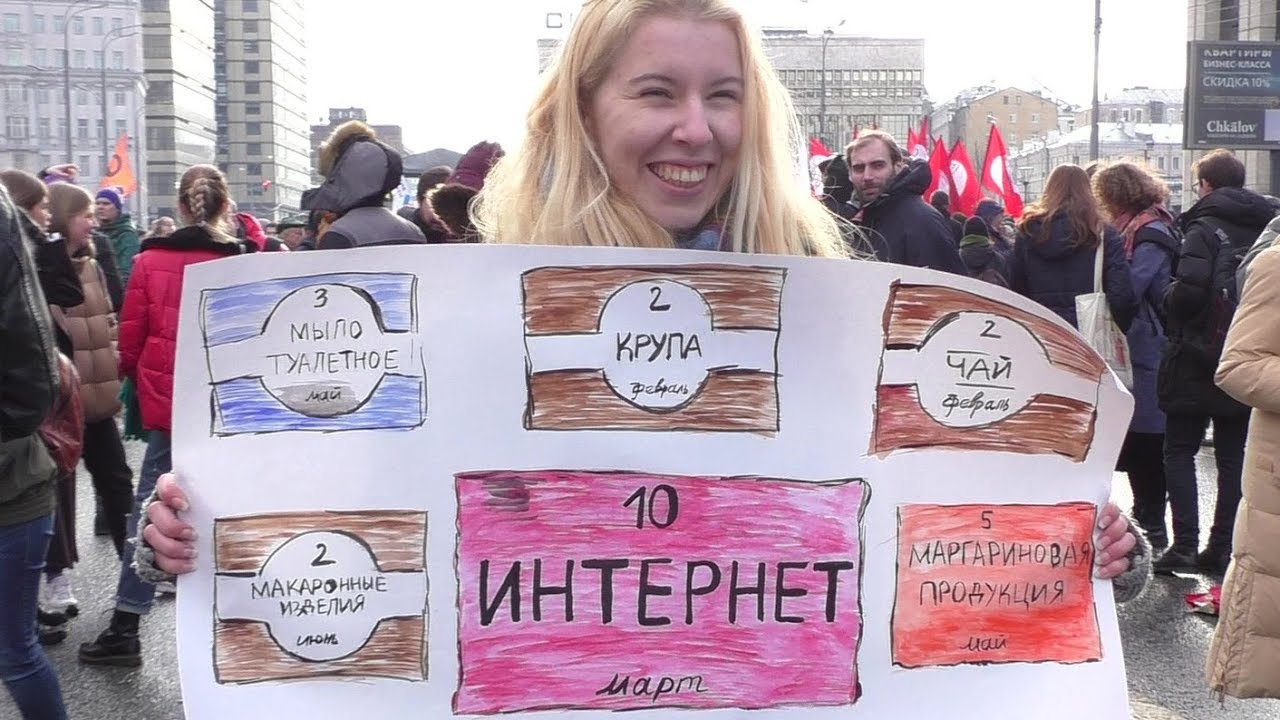 КВАРТИРЫ
БИЗНЕС-КЛАССА
СКИДКА 10%
Chkalov
3
МЫЛО
ТУАЛЕТНОЕ
май
2
КРУПА
февраль
2
ЧАЙ
февраль
2
МАКАРОННЫЕ
ИЗДЕЛИЯ
июнь
10
ИНТЕРНЕТ
март
5
МАРГАРИНОВАЯ
ПРОДУКЦИЯ
май